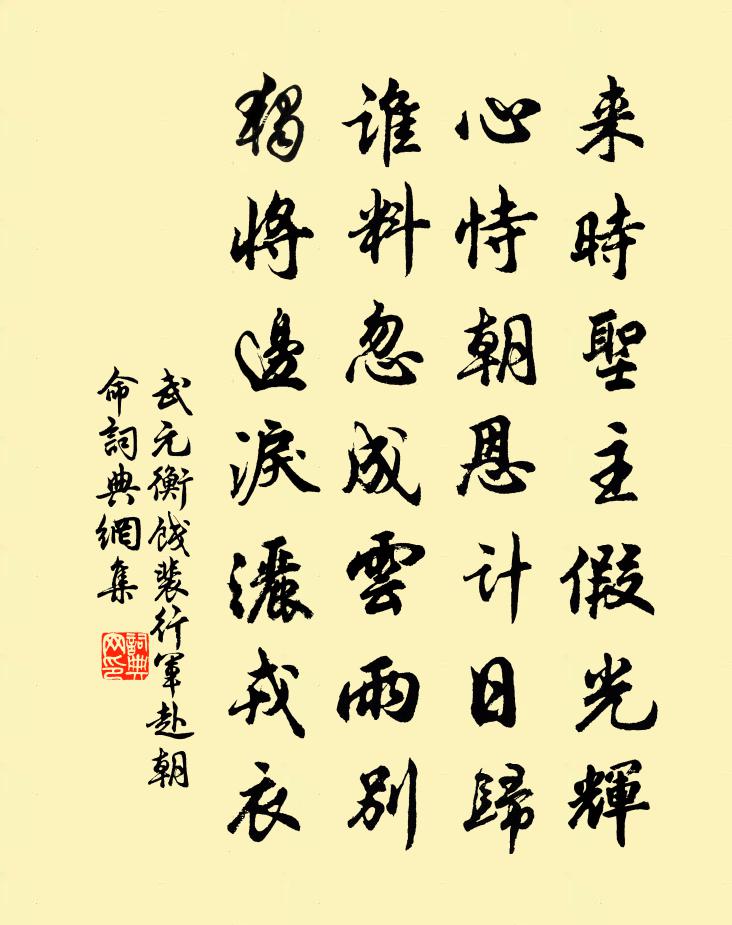 来時聖主假光輝
心恃朝恩计日歸
誰料忽成雲雨別
獨將邊淚灑戎衣
武元衡餞裴行軍赴朝
命詞典網集
詞典網印